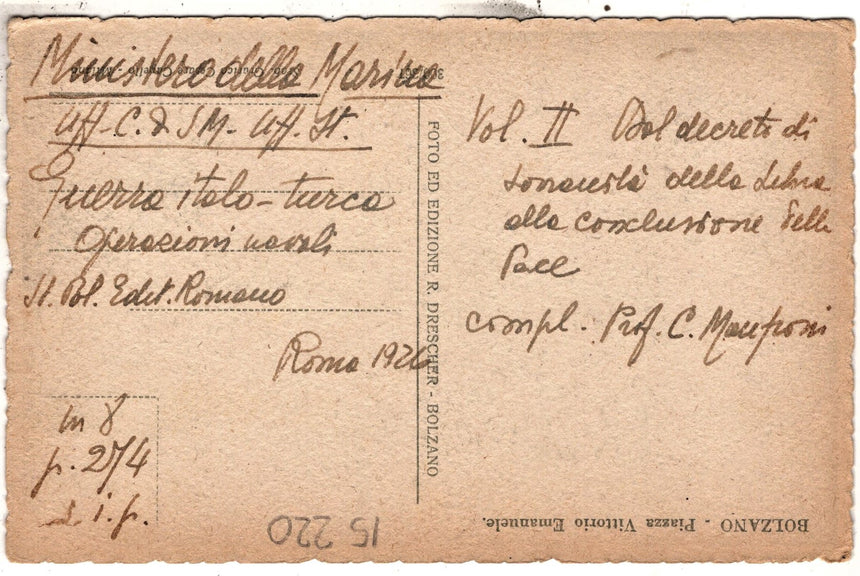 Ministero della Marina
Uff. C. di S M - Uff. St.
Guerra italo-turca
Operazioni navali
St. Pol. Edit. Romano
Roma 1926
in 8
p. 274
i. p.
Vol. II Dal decreto di
sovranità della Libia
alla conclusione della
Pace
compl. Prof. C. Manfroni
FOTO ED EDIZIONE R. DRESCHER - BOLZANO
BOLZANO - Piazza Vittorio Emanuele.
15 220